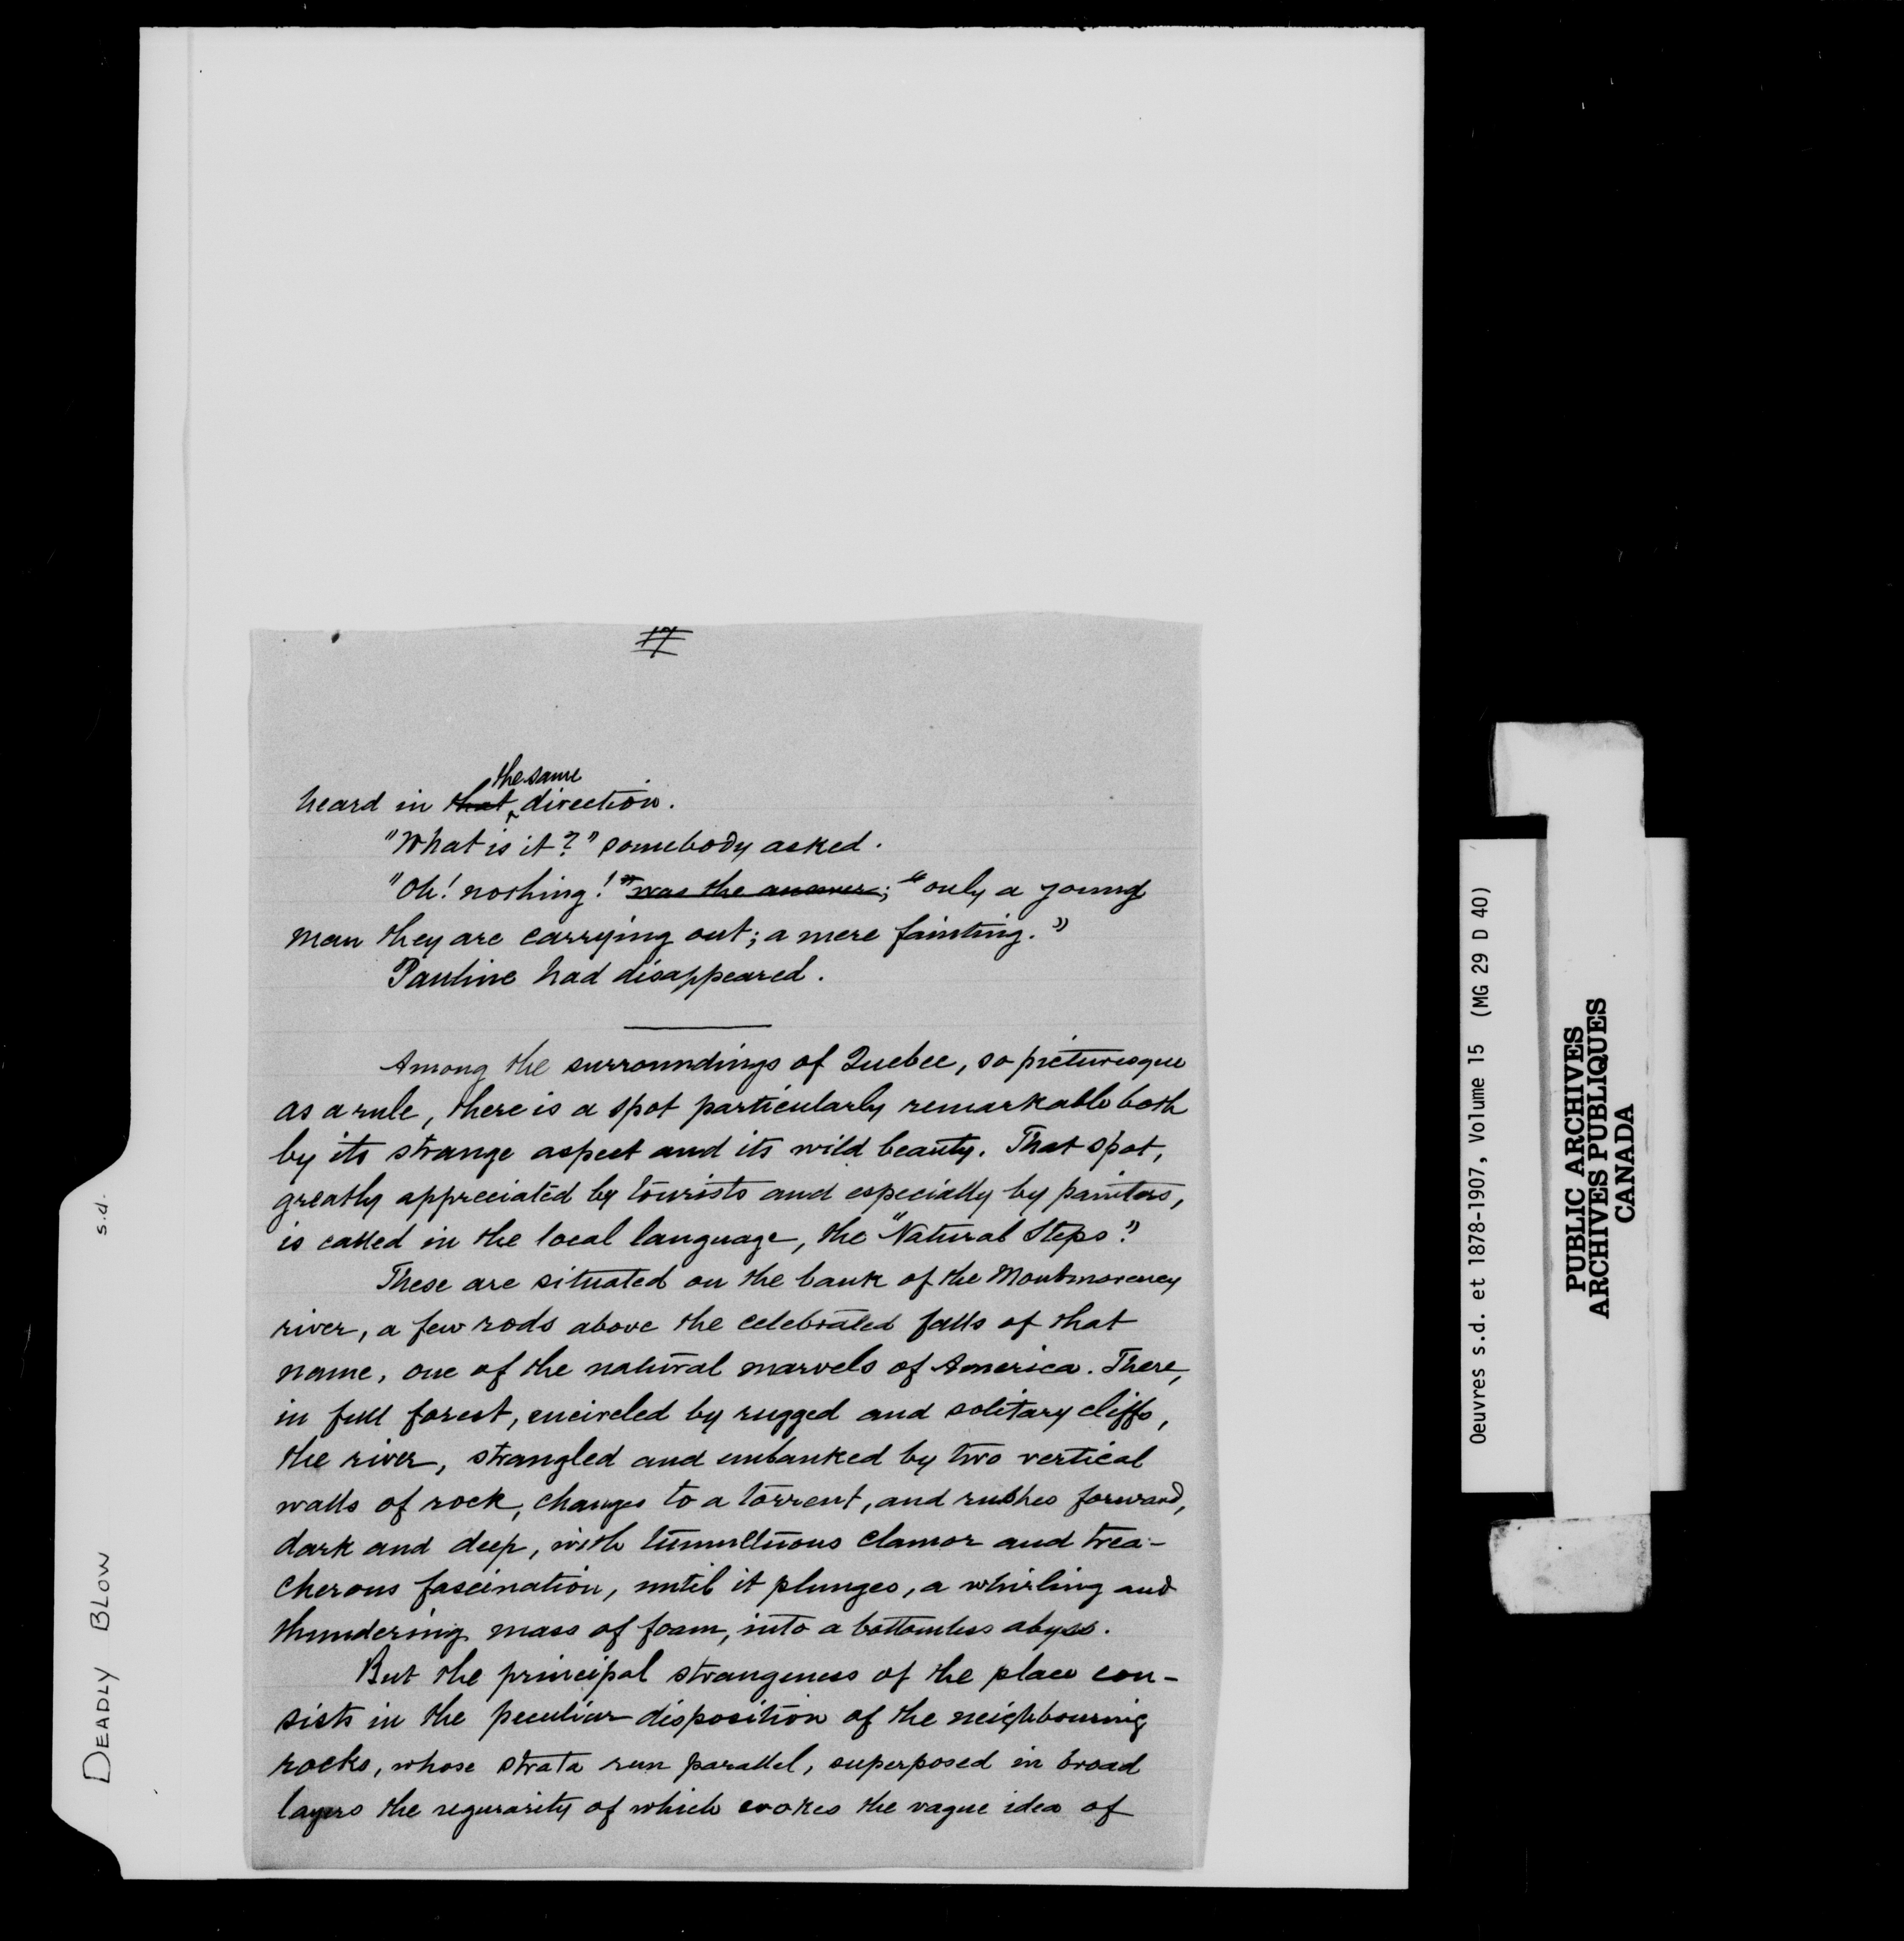 17
the same
heard in that direction.
"What is it?" somebody asked.
"Oh! nothing!" was the answer; "only a young
man they are carrying out; a mere fainting."
Pauline had disappeared.
Among the surroundings of Quebec, so picturesque
as a rule, there is a spot particularly remarkable both
by its strange aspect and its wild beauty. That spot,
greatly appreciated by tourists and especially by painters,
is called in the local language, the "Natural Steps."
These are situated on the bank of the Montmorency
river, a few rods above the celebrated falls of that
name, one of the natural marvels of America. There,
in full forest, encircled by rugged and solitary cliffs,
the river, strangled and embanked by two vertical
walls of rock, changes to a torrent, and rushes forward,
dark and deep, with tumultuous clamor and trea-
cherous fascination, until it plunges, a whirling and
thundering mass of foam, into a bottomless abyss.
But the principal strangeness of the place con-
sists in the peculiar disposition of the neighbouring
rocks, whose strata run parallel, superposed in broad
layers the regurarity of which evokes the vague idea of
DEADLY BLOW s.d.
Oeuvres s.d. et 1878-1907, Volume 15 (MG 29 D 40)
PUBLIC ARCHIVES
ARCHIVES PUBLIQUES
CANADA